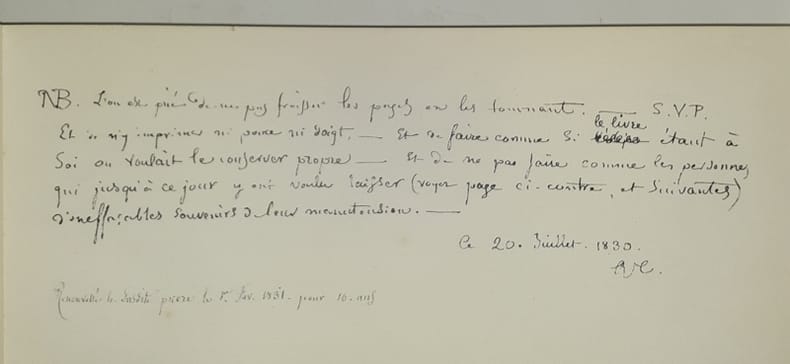 NB. L'on est prié de ne pas froisser les pages en les tournant. — S.V.P.
Et de n'y imprimer ni pouce ni doigt. — Et de faire comme si le livre étant à
Soi on voulait le conserver propre — Et de ne pas faire comme les personnes
qui jusqu'à ce jour y ont voulu laisser (voyez page ci-contre, et suivantes)
d'ineffaçables souvenirs de leur manutension. —
Ce 20. Juillet. 1830.
Renouvellé la susdite prière le 1er. Fév. 1831. pour 10. ans